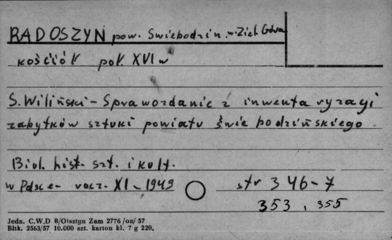 RADOSZYN pow. Świebodzin. w. Ziel. Góra
kościół poł XVI w
S. Wiliński - Sprawozdanie z inwentaryzacji
zabytków sztuki powiatu świebodzińskiego
Biul. hist. szt. i kult.
w Polsce - rocz. XI - 1949 str 346-7
353, 355
Jedn. C.W.D 8/Olsztyn Zam 2776/on/57
Bltk. 2563/57 10.000 szt. karton kl. 7 g 220.